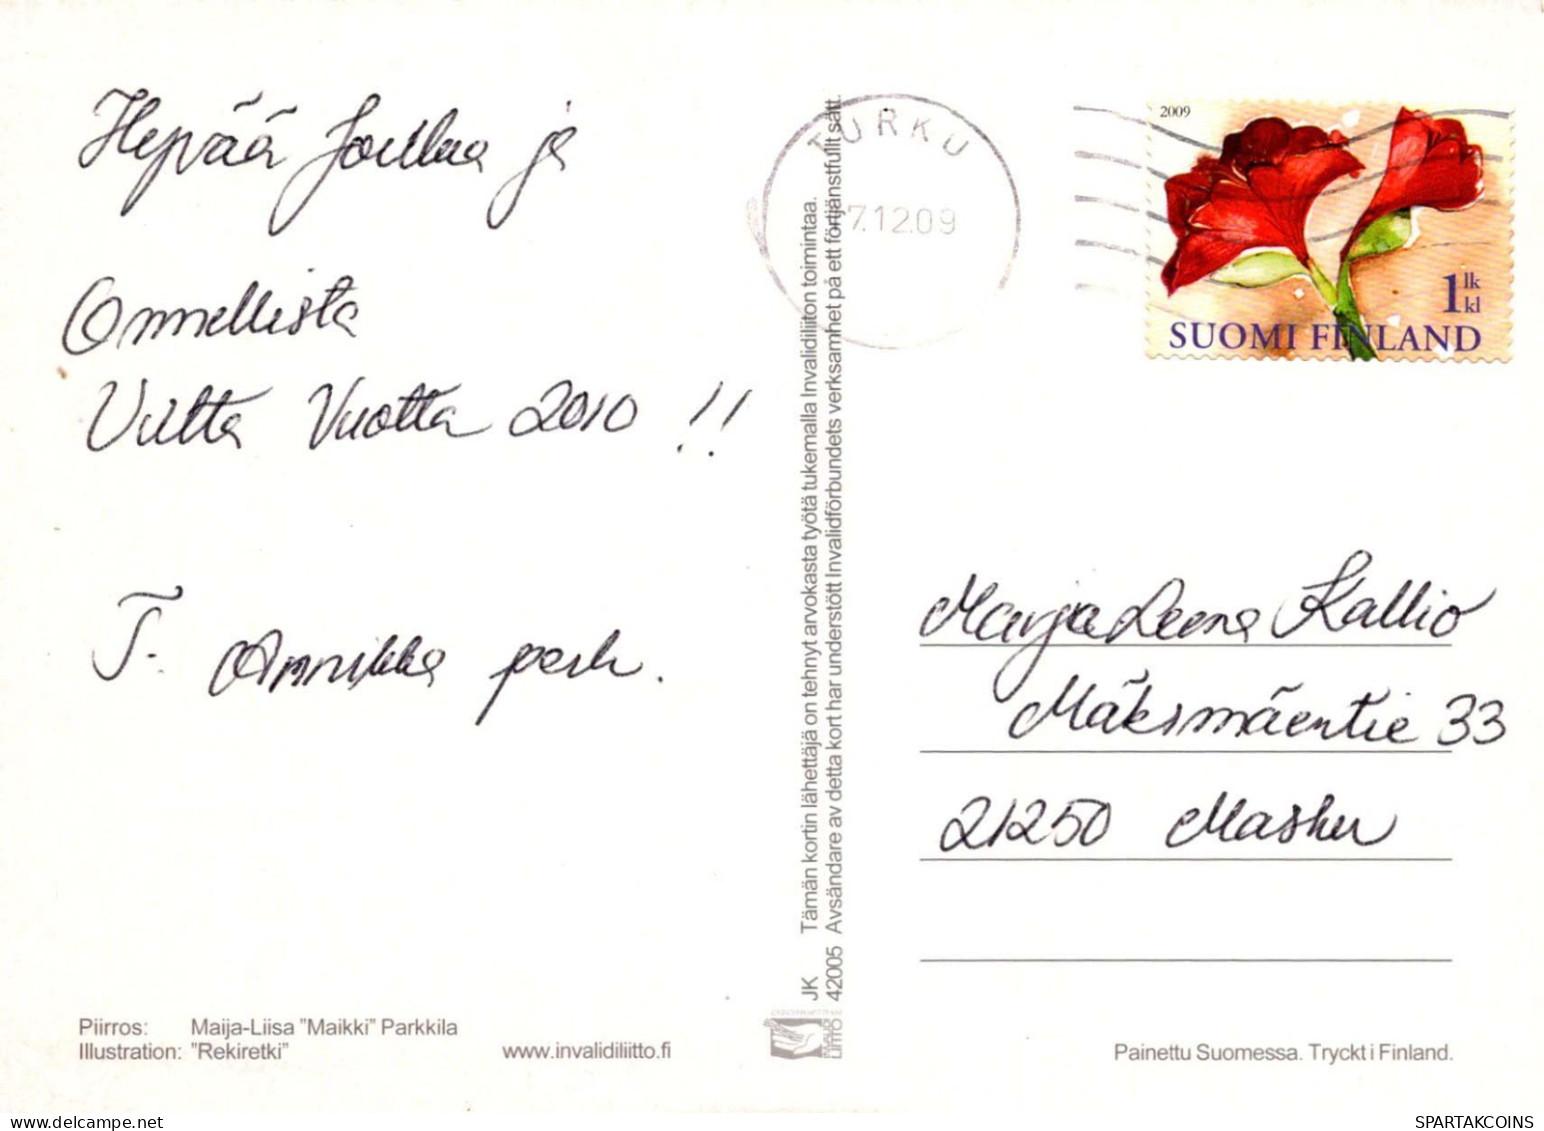 Hyvää Joulua ja
Onnellista
Uutta Vuotta 2010 !!
T. Annikka perh.
Piirros: Maija-Liisa "Maikki" Parkkila
Illustration: "Rekiretki"
www.invalidiliitto.fi
JK Tämän kortin lähettäjä on tehnyt arvokasta työtä tukemalla Invalidiliiton toimintaa.
42005 Avsändare av detta kort har understött Invalidförbundets verksamhet på ett förtjänstfullt sätt.
TURKU
7.12.09
2009
1 lk
kl
SUOMI FINLAND
Marja Leena Kallio
Mäksmäentie 33
21250 Masku
Painettu Suomessa. Tryckt i Finland.
SPARTAKCOINS